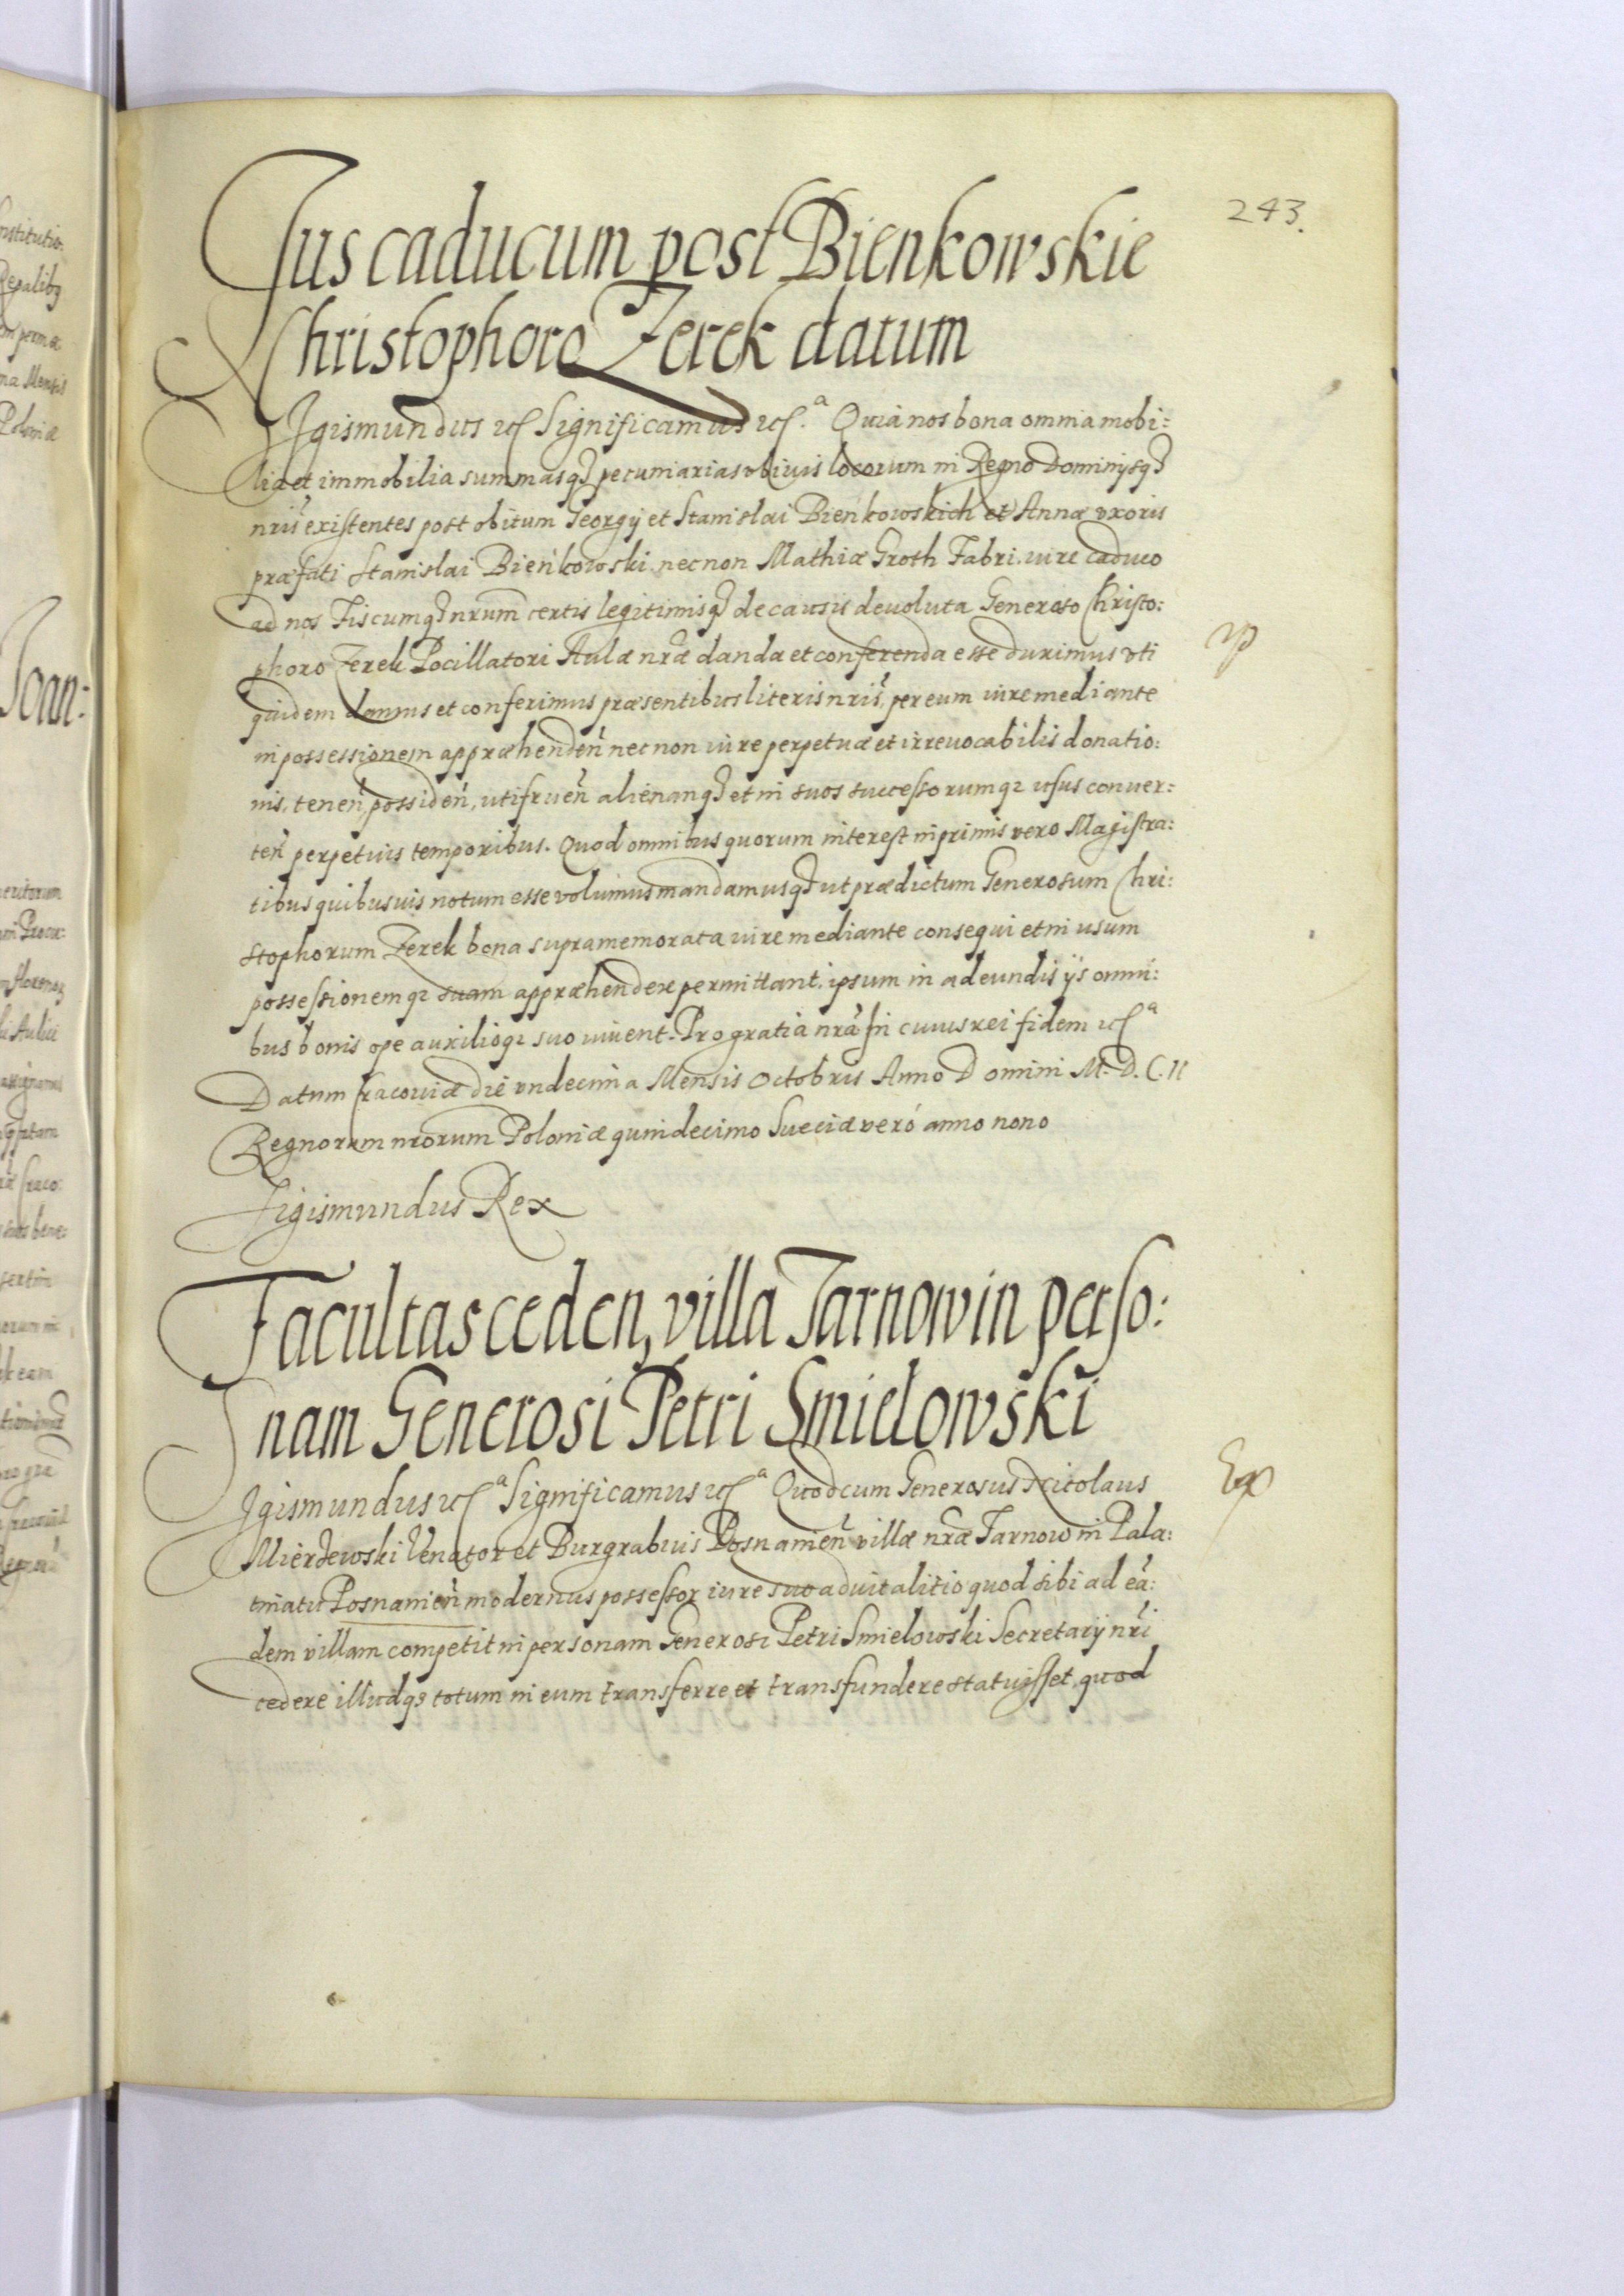 243.
Jus caducum post Bienkowskie
Christophoro Zerek datum
Sigismundus etc Significamus etc.ᵃ Quia nos bona omnia mobi:
lia et immobilia summasq₃ pecuniarias vbiuis locorum in Regno Dominijsq₃
nris̃ existentes post obitum Georgij et Stanislai Bienkowskich et Annæ vxoris
præfati Stanislai Bieńkowski necnon Mathiæ Groth Fabri. iure caduco
ad nos Fiscumq₃ nrum̃ certis legitimisq₃ de causis deuoluta Generoso Christo:
phoro Zerek Pocillatori Aulæ nræ̃ danda et conferenda esse duximus vti
quidem damus et conferimus præsentibus literis nris̃, per eum iure mediante
in possessionem appræhendeñ necnon iure perpetuæ et irreuocabilis donatio:
nis, teneñ, possideñ, vtifrueñ alienanq₃ et in suos successorumq₃ vsus conuer:
teñ perpetuis temporibus. Quod omnibus quorum interest inprimis vero Magistra:
tibus quibusuis notum esse volumus mandamusq₃ ut prædictum Generosum Chri:
stophorum Zerek bona supramemorata iure mediante consequi et in usum
possessionemq₃ suam appræhendere permittant. ipsum in adeundis ijs omni:
bus bonis ope auxilioq₃ suo iuuent. Pro gratia nrã In cuius rei fidem etcᵃ
Datum Cracouiæ die vndecima Mensis Octobris Anno Domini M. D. C. II
Regnorum nrorum Poloniæ quindecimo Sueciæ veró anno nono
Sigismundus Rex
Facultas ceden, villa Tarnow in perso:
nam Generosi Petri Smielowski
Sigismundus etcᵃ Significamus etcᵃ Quod cum Generosus Nicolaus
Mierzewski Venator et Burgrabius Posnanieñ villæ nræ̃ Tarnow in Pala:
tinatu Posnanieñ modernus possessor iure suo aduitalitio quod sibi ad eã:
dem villam competit in personam Generosi Petri Smielowski Secretarij nrĩ
cedere illudq₃ totum in eum transferre et transfundere statuisset, quod